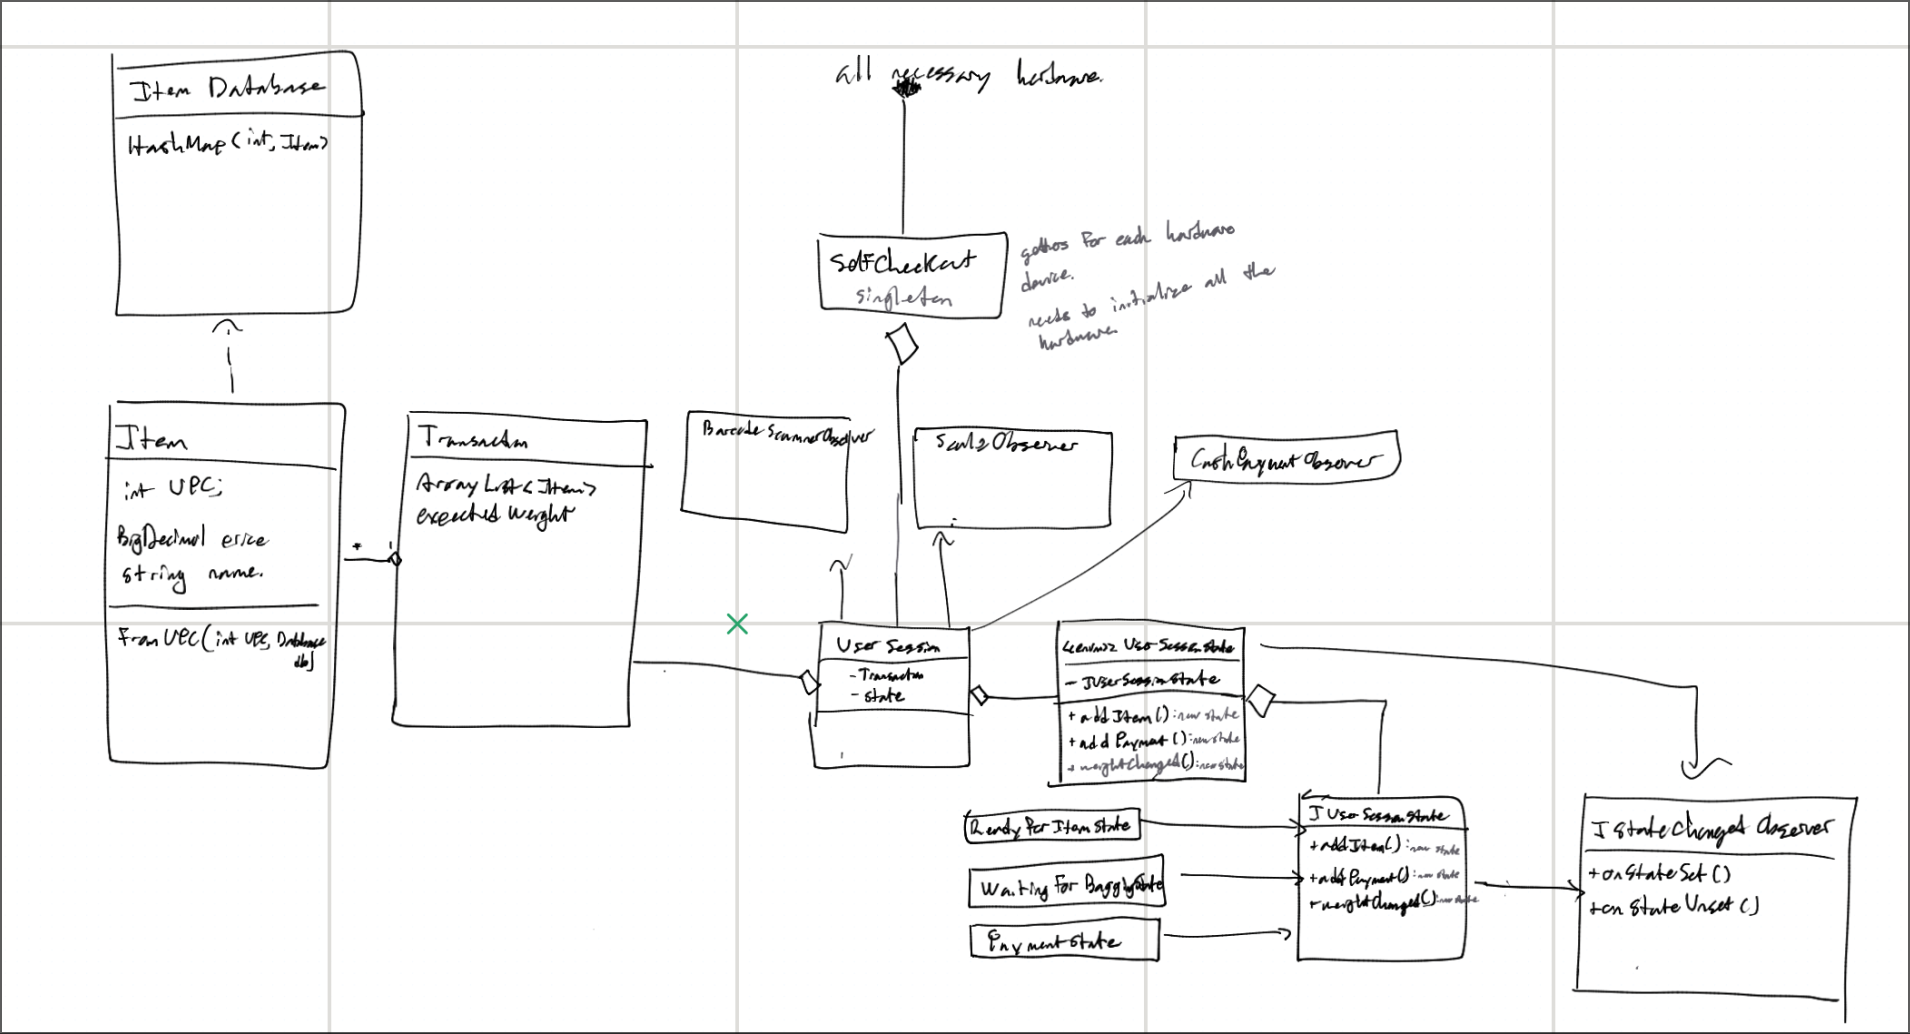 all necessary hardware.
Item Database
HashMap<int, Item>
SelfCheckout
singleton
getters for each hardware
device.
needs to initialize all the
hardware.
Item
int UPC;
BigDecimal price
string name.
From UPC(int UPC, Database
db)
*
1
Transaction
ArrayList<Item>
expected Weight
BarcodeScannerObserver
ScaleObserver
CashPaymentObserver
User Session
- Transaction
- state
<<enum>> UserSessionState
- IUserSessionState
+ addItem() : new state
+ addPayment() : new state
+ weightChanged() : new state
ReadyForItemState
Waiting For BaggingState
PaymentState
IUserSessionState
+ addItem() : new state
+ addPayment() : new state
+ weightChanged() : new state
IStateChanged Observer
+ onStateSet()
+ onStateUnset()